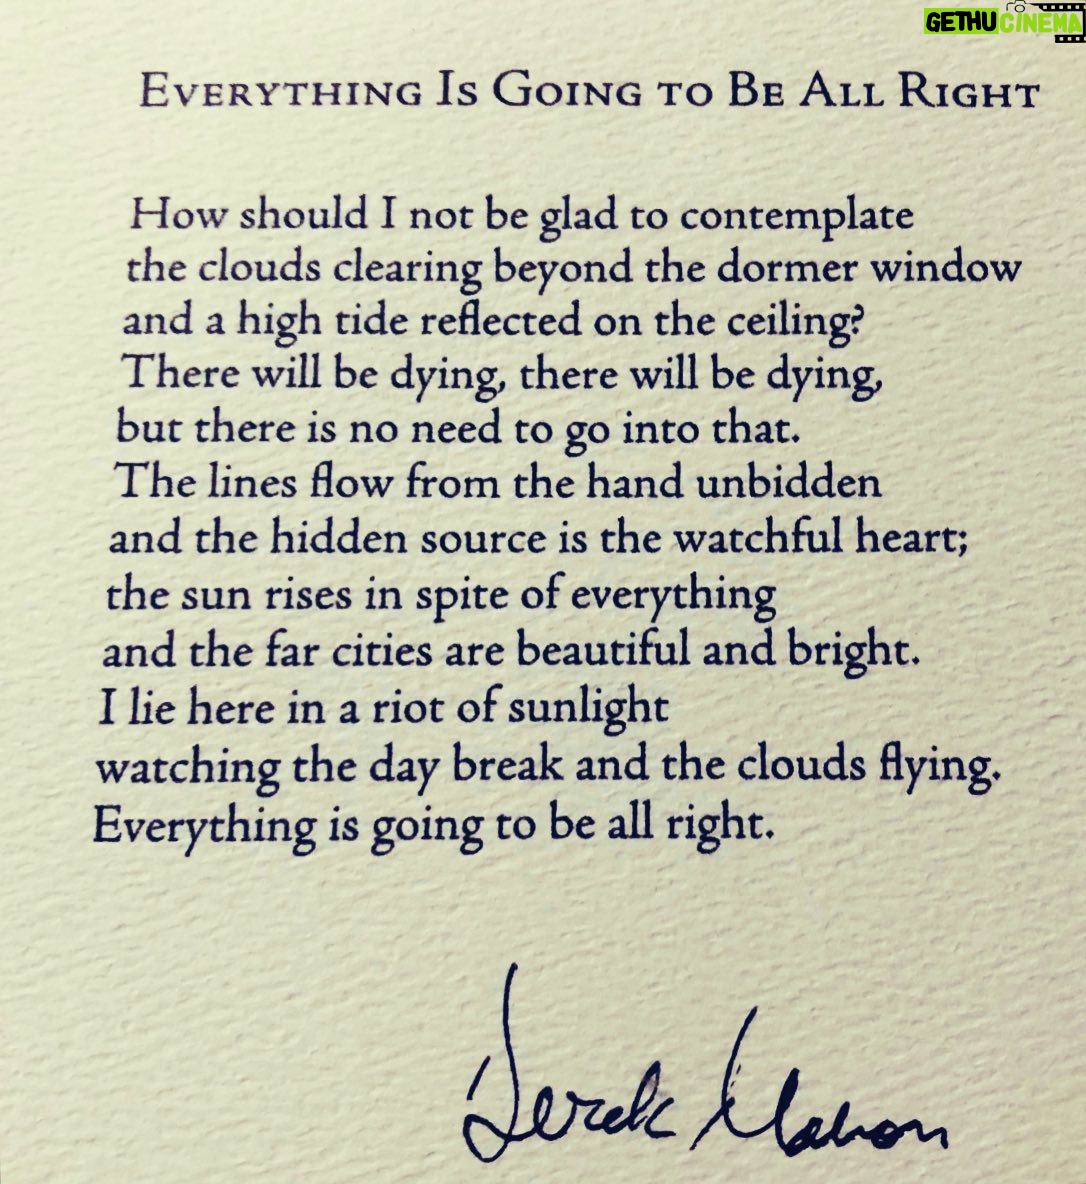 GETHUCINEMA
EVERYTHING IS GOING TO BE ALL RIGHT
How should I not be glad to contemplate
the clouds clearing beyond the dormer window
and a high tide reflected on the ceiling?
There will be dying, there will be dying,
but there is no need to go into that.
The lines flow from the hand unbidden
and the hidden source is the watchful heart;
the sun rises in spite of everything
and the far cities are beautiful and bright.
I lie here in a riot of sunlight
watching the day break and the clouds flying.
Everything is going to be all right.
Derek Mahon